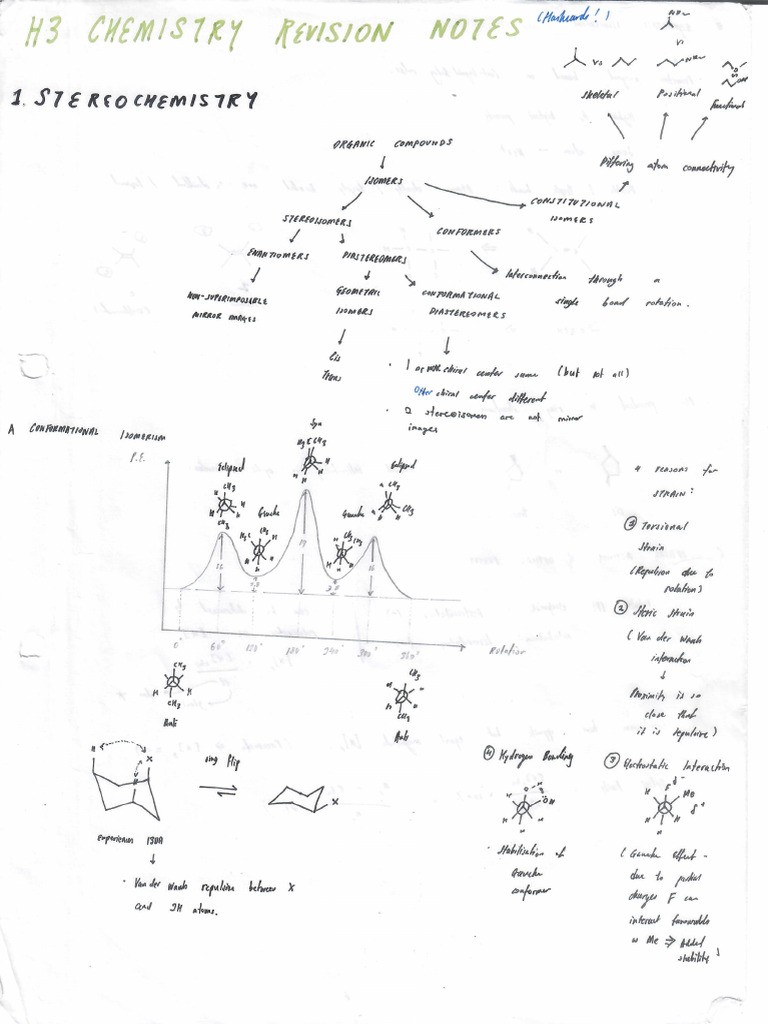 H3 CHEMISTRY REVISION NOTES
(Flashcards!)
1. STEREOCHEMISTRY
vs
vs
vs
Skeletal
Positional
Functional
Differing atom connectivity
ORGANIC COMPOUNDS
ISOMERS
STEREOISOMERS
CONFORMERS
CONSTITUTIONAL
ISOMERS
ENANTIOMERS
DIASTEREOMERS
Interconnection through a
single bond rotation.
NON-SUPERIMPOSABLE
MIRROR IMAGES
GEOMETRIC
ISOMERS
CONFORMATIONAL
DIASTEREOMERS
Cis
Trans
chiral center same (but not all)
Other chiral center different
2 stereoisomers are not mirror
images
A CONFORMATIONAL ISOMERISM
P.E.
Syn
Eclipsed
Gauche
Gauche
Eclipsed
CH3
CH3
CH3
CH3
0° 60° 120° 180° 240° 300° 360°
Rotation
CH3
H H
CH3
Anti
CH3
CH3
Anti
4 REASONS FOR
STRAIN:
① Torsional
Strain
(Repulsion due to
rotation)
② Steric Strain
(Van der Waals
interaction
Proximity is so
close that
it is repulsive)
③ Electrostatic Interaction
F δ-
Me
δ+
H
H H
(Gauche effect -
due to partial
charges F can
interact favourably
w Me ⇒ Added
stability)
④ Hydrogen Bonding
OH
• Stabilisation of
Gauche
conformer
H
X
H
ring flip
X
Experiences 13DA
• Van der Waals repulsion between X
and 2H atoms.